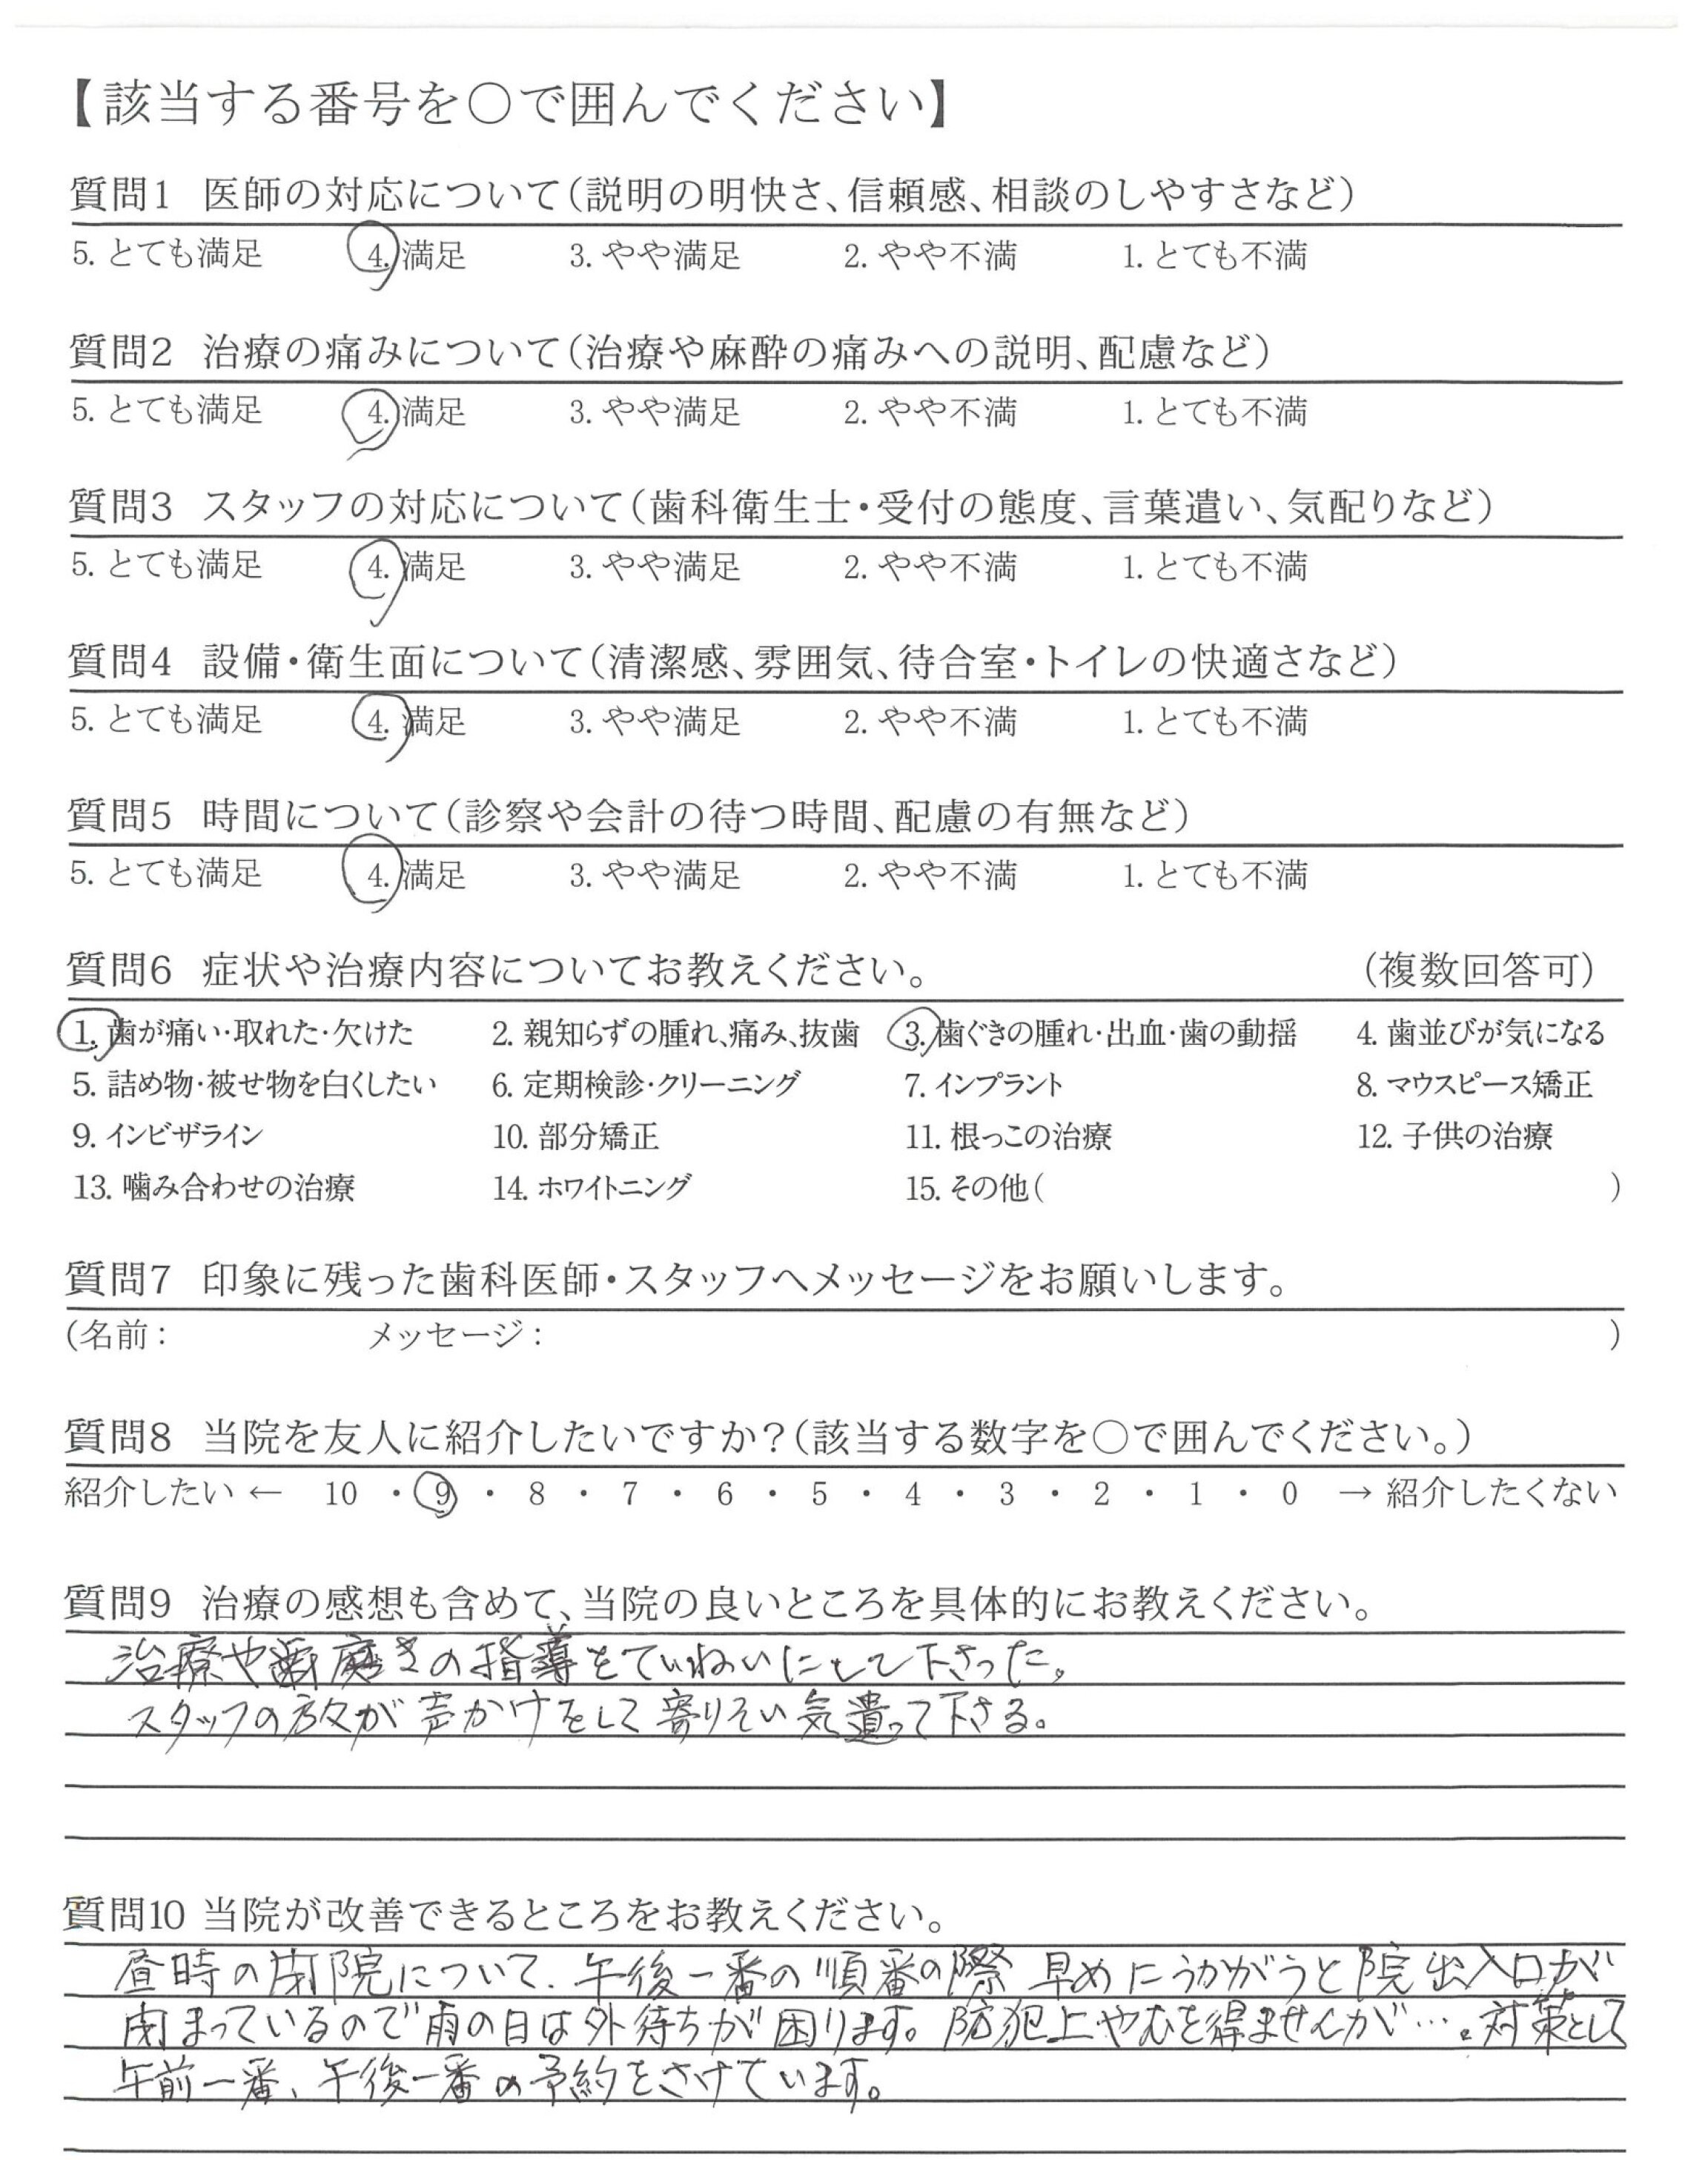 【該当する番号を〇で囲んでください】
質問1 医師の対応について(説明の明快さ、信頼感、相談のしやすさなど)
5. とても満足 4. 満足 3. やや満足 2. やや不満 1. とても不満
質問2 治療の痛みについて(治療や麻酔の痛みへの説明、配慮など)
5. とても満足 4. 満足 3. やや満足 2. やや不満 1. とても不満
質問3 スタッフの対応について(歯科衛生士・受付の態度、言葉遣い、気配りなど)
5. とても満足 4. 満足 3. やや満足 2. やや不満 1. とても不満
質問4 設備・衛生面について(清潔感、雰囲気、待合室・トイレの快適さなど)
5. とても満足 4. 満足 3. やや満足 2. やや不満 1. とても不満
質問5 時間について(診察や会計の待つ時間、配慮の有無など)
5. とても満足 4. 満足 3. やや満足 2. やや不満 1. とても不満
質問6 症状や治療内容についてお教えください。 (複数回答可)
1. 歯が痛い・取れた・欠けた 2. 親知らずの腫れ、痛み、抜歯 3. 歯ぐきの腫れ・出血・歯の動揺 4. 歯並びが気になる
5. 詰め物・被せ物を白くしたい 6. 定期検診・クリーニング 7. インプラント 8. マウスピース矯正
9. インビザライン 10. 部分矯正 11. 根っこの治療 12. 子供の治療
13. 噛み合わせの治療 14. ホワイトニング 15. その他( )
質問7 印象に残った歯科医師・スタッフへメッセージをお願いします。
(名前: メッセージ: )
質問8 当院を友人に紹介したいですか?(該当する数字を〇で囲んでください。)
紹介したい ← 10 ・ 9 ・ 8 ・ 7 ・ 6 ・ 5 ・ 4 ・ 3 ・ 2 ・ 1 ・ 0 → 紹介したくない
質問9 治療の感想も含めて、当院の良いところを具体的にお教えください。
治療や歯磨きの指導をていねいにして下さった。
スタッフの方々が声かけをして寄りそい気遣って下さる。
質問10 当院が改善できるところをお教えください。
昼時の閉院について、午後一番の順番の際 早めにうかがうと院出入口が
閉まっているので雨の日は外待ちが困ります。防犯上やむを得ませんが…。対策として
午前一番、午後一番の予約をさけています。